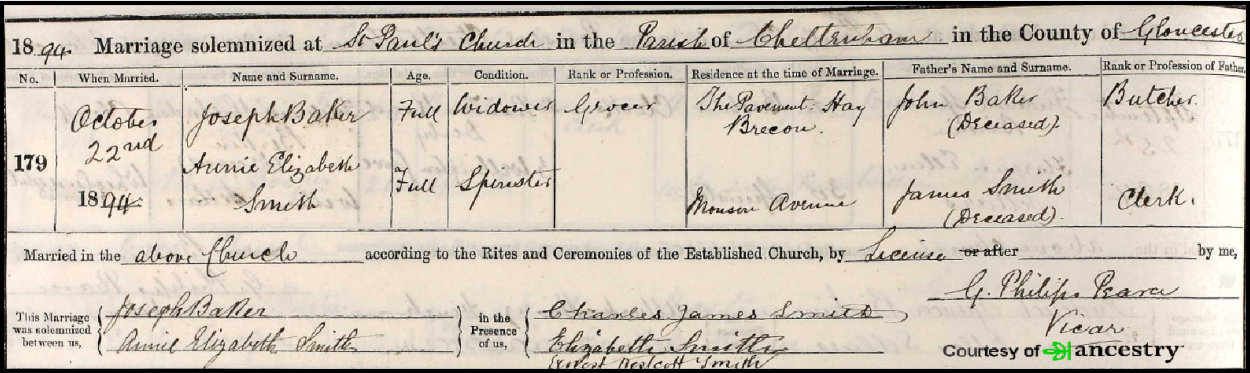 1894. Marriage solemnized at St Paul's Church in the Parish of Cheltenham in the County of Gloucester
No. When Married. Name and Surname. Age. Condition. Rank or Profession. Residence at the time of Marriage. Father's Name and Surname. Rank or Profession of Father.
179
October
22nd
1894
Joseph Baker Full Widower Grocer The Pavement Hay
Brecon.
John Baker
(Deceased).
Butcher.
Annie Elizabeth
Smith
Full Spinster Monson Avenue James Smith
(Deceased).
Clerk.
Married in the above Church according to the Rites and Ceremonies of the Established Church, by License or after by me,
G. Philips Pearce
Vicar
This Marriage
was solemnized
between us,
Joseph Baker
Annie Elizabeth Smith
in the
Presence
of us,
Charles James Smith
Elizabeth Smith
Ernest Westcott Smith
Courtesy of ancestry